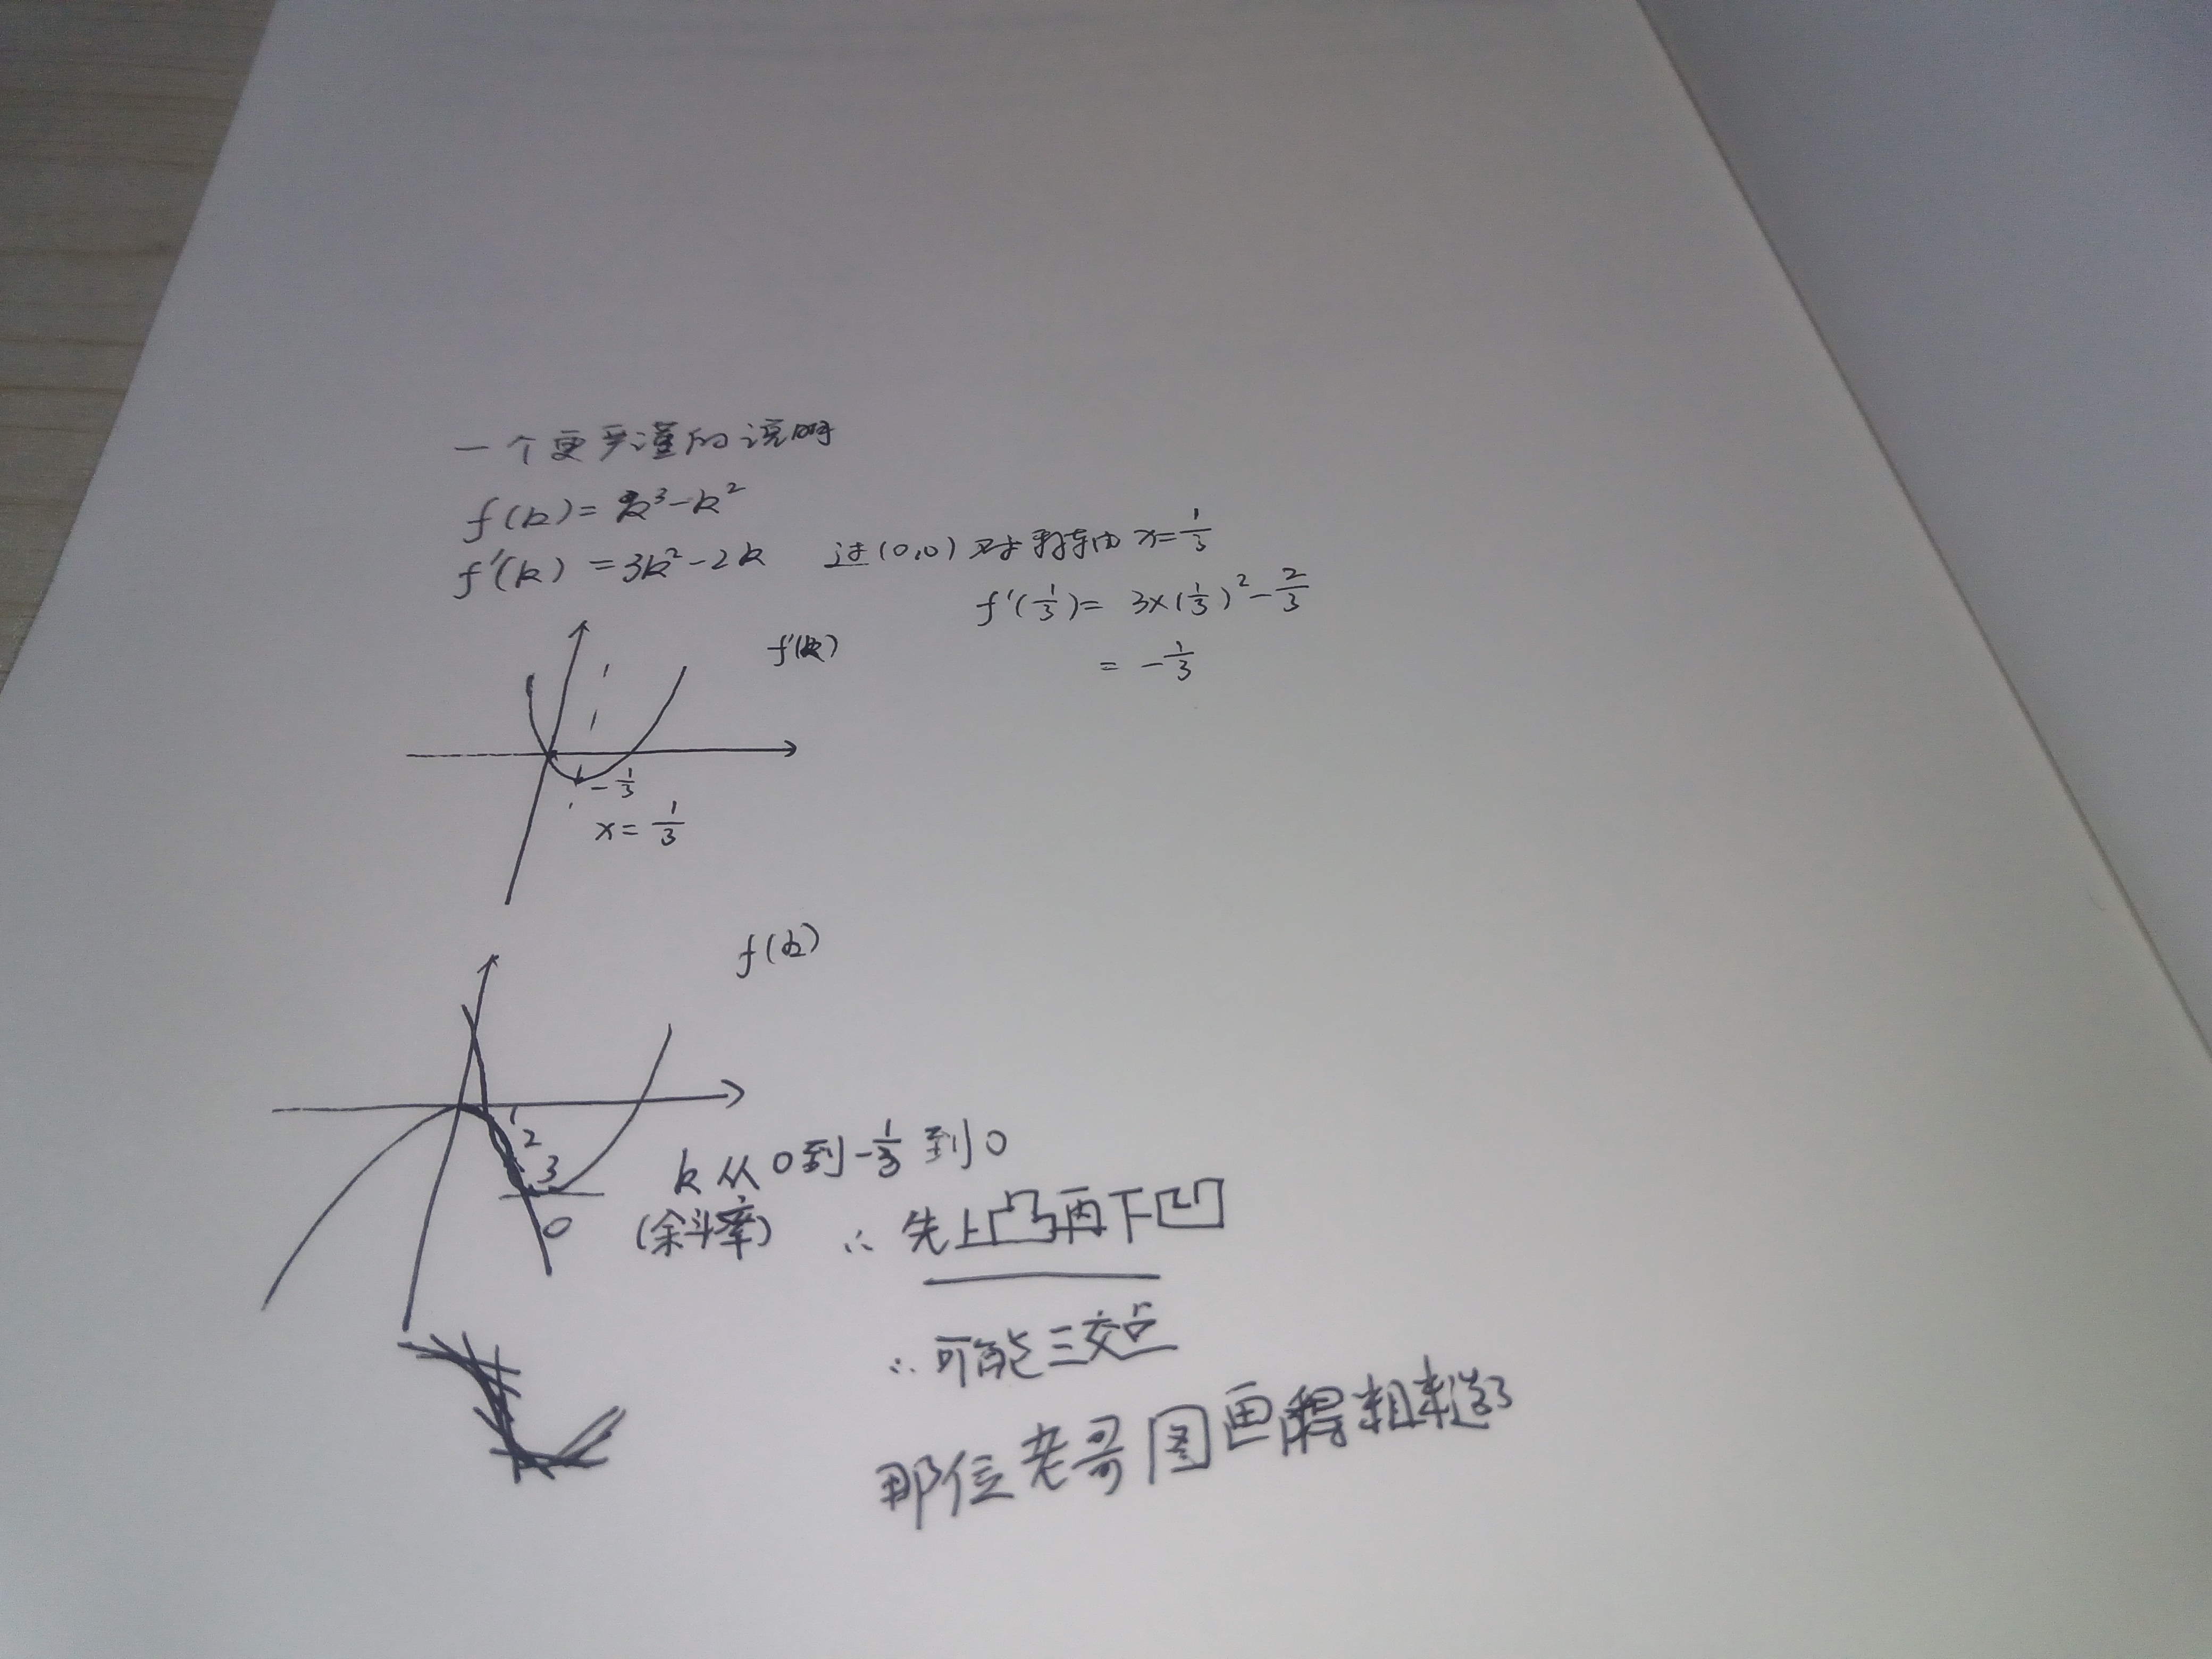 一个更严谨的说明
f(k)=k³-k²
f'(k)=3k²-2k 过(0,0) 对称轴 x=1/3
f'(1/3)=3×(1/3)²-2/3
=-1/3
f'(k)
-1/3
x=1/3
f(k)
1
2
3
0
k从0到-1/3到0
(余斗率)
∴先上凸再下凹
∴可能三交点
那位老哥图画得粗糙了